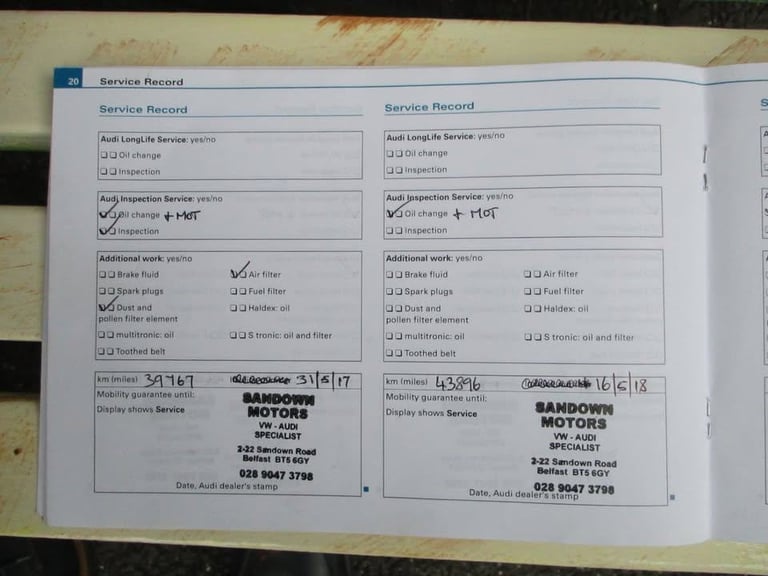 20 Service Record
Service Record
Audi LongLife Service: yes/no
Oil change
Inspection
Audi Inspection Service: yes/no
Oil change + MOT
Inspection
Additional work: yes/no
Brake fluid Air filter
Spark plugs Fuel filter
Dust and Haldex: oil
pollen filter element
multitronic: oil S tronic: oil and filter
Toothed belt
km (miles) 39767 31/5/17
Mobility guarantee until:
Display shows Service
SANDOWN
MOTORS
VW - AUDI
SPECIALIST
2-22 Sandown Road
Belfast BT5 6GY
028 9047 3798
Date, Audi dealer's stamp
Service Record
Audi LongLife Service: yes/no
Oil change
Inspection
Audi Inspection Service: yes/no
Oil change + MOT
Inspection
Additional work: yes/no
Brake fluid Air filter
Spark plugs Fuel filter
Dust and Haldex: oil
pollen filter element
multitronic: oil S tronic: oil and filter
Toothed belt
km (miles) 43896 16/5/18
Mobility guarantee until:
Display shows Service
SANDOWN
MOTORS
VW - AUDI
SPECIALIST
2-22 Sandown Road
Belfast BT5 6GY
028 9047 3798
Date, Audi dealer's stamp